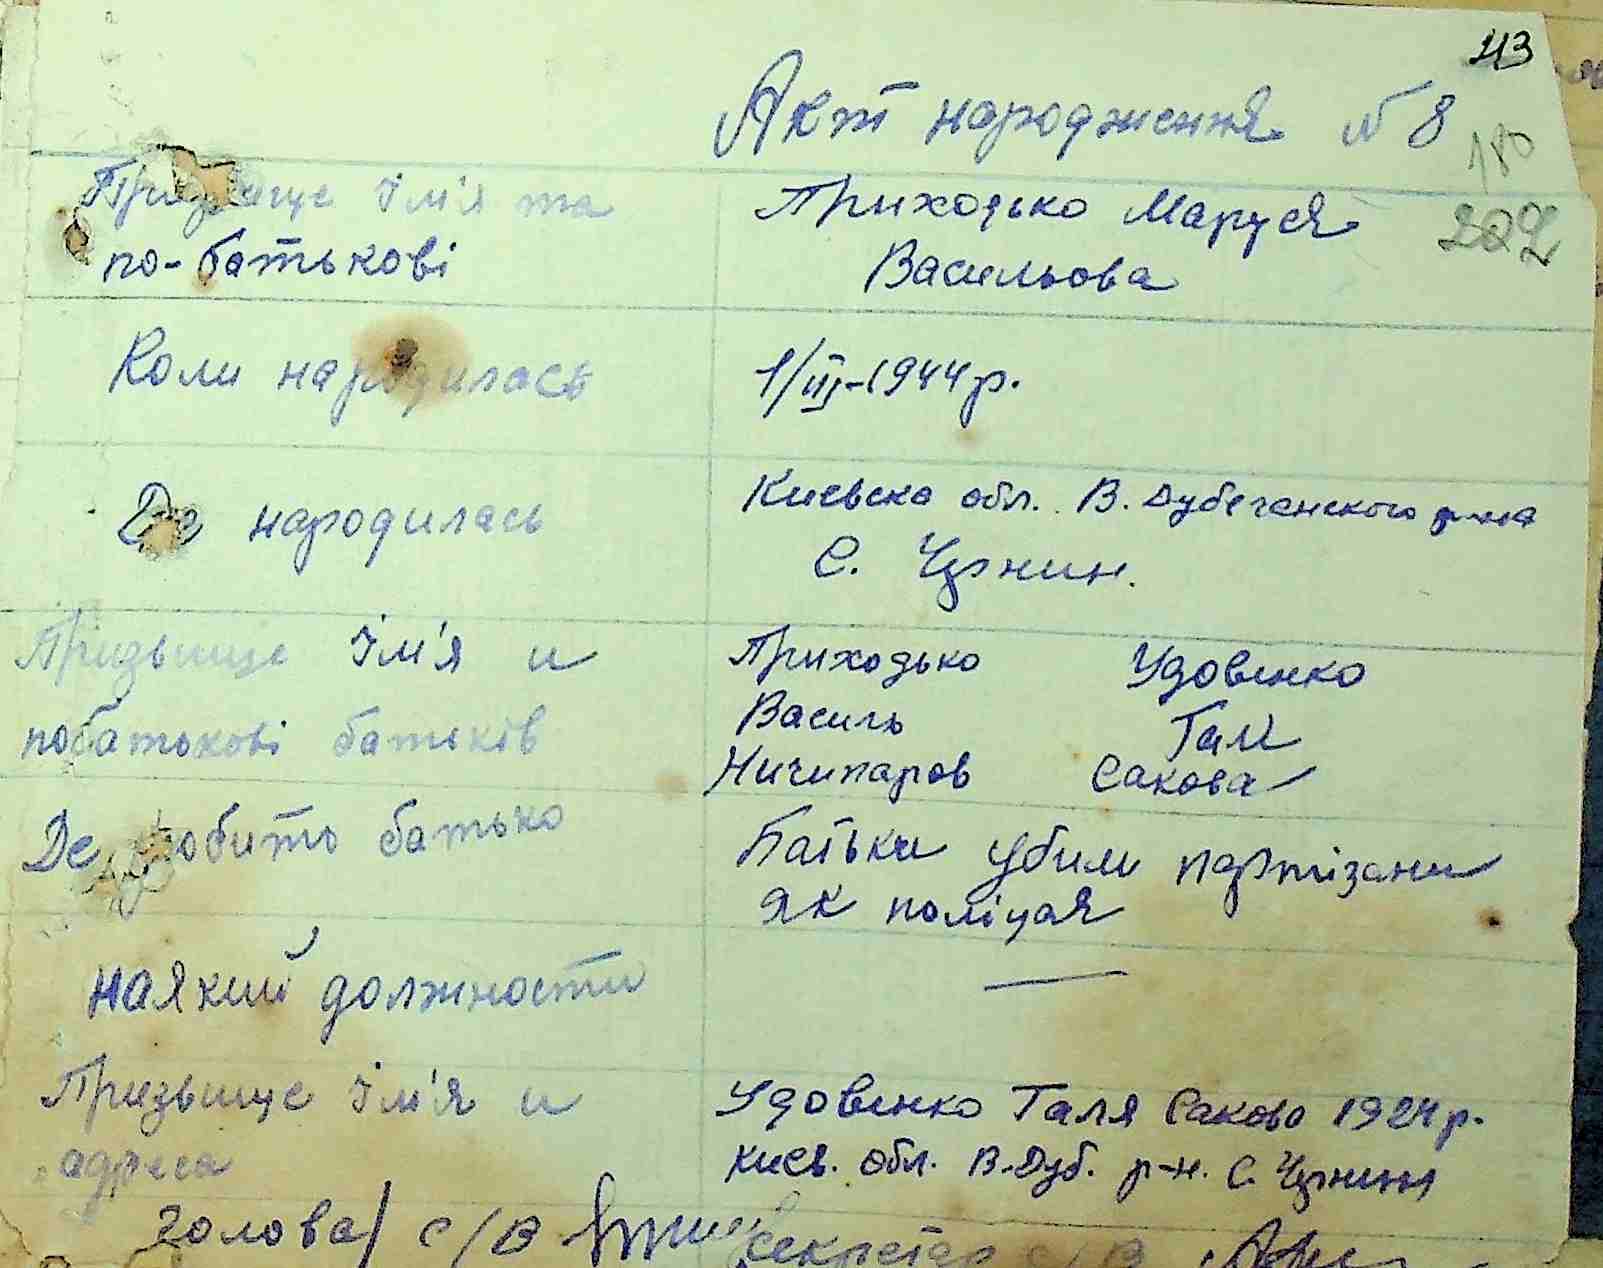 43
Акт народження №8
180
202
Призвище Ім'я та
по-батькові
Приходько Маруся
Васильова
Коли народилась
1/III-1944р.
Де народилась
Киевска обл. В. Дубечанского р-на
С. Чернин.
Призьвище Ім'я и
побатькові батьків
Приходько Удовенко
Василь Галя
Ничипаров Сакова
Де робить батько
Батьки убили партізани
як поліцая
на якій должности
—
Призьвище Ім'я и
адреса
Удовенко Галя Сакова 1924р.
Киев. обл. В-Дуб. р-н. С. Чернин
Голова С/В Секретар С/В